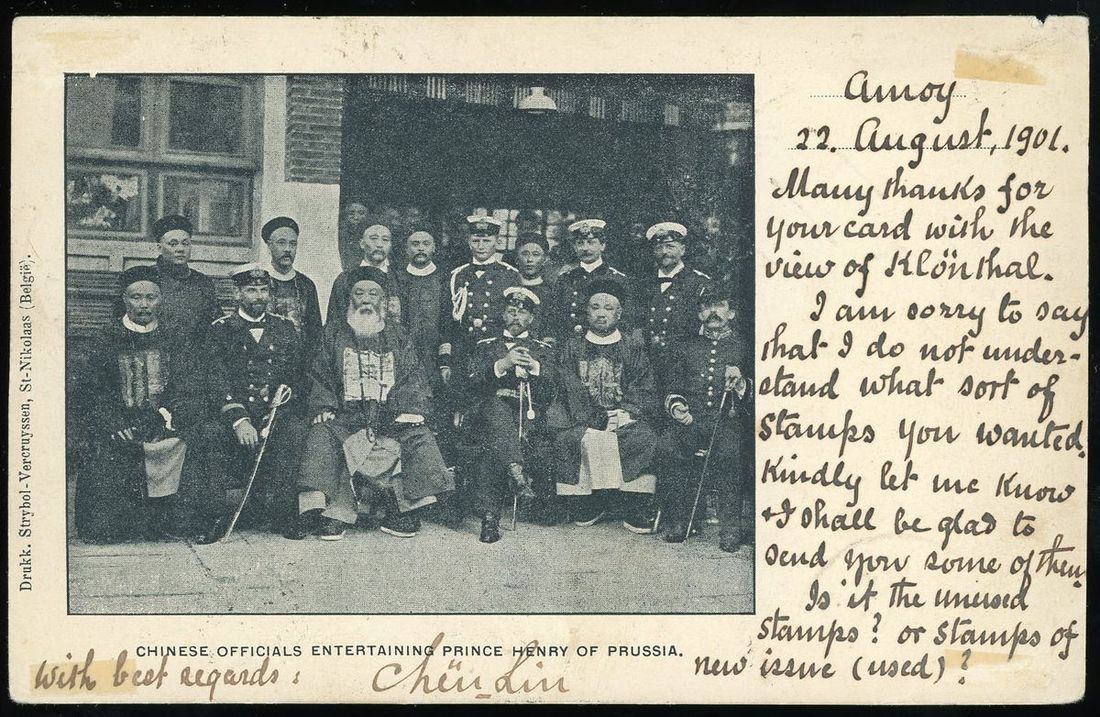 Amoy
22. August, 1901.
Many thanks for
your card with the
view of Klönthal.
I am sorry to say
that I do not under-
stand what sort of
stamps you wanted.
Kindly let me know
& I shall be glad to
send you some of them.
Is it the unused
stamps? or stamps of
new issue (used)?
CHINESE OFFICIALS ENTERTAINING PRINCE HENRY OF PRUSSIA.
with best regards:
Chën Lin
Drukk. Strybol-Vercruyssen, St-Nikolaas (België).